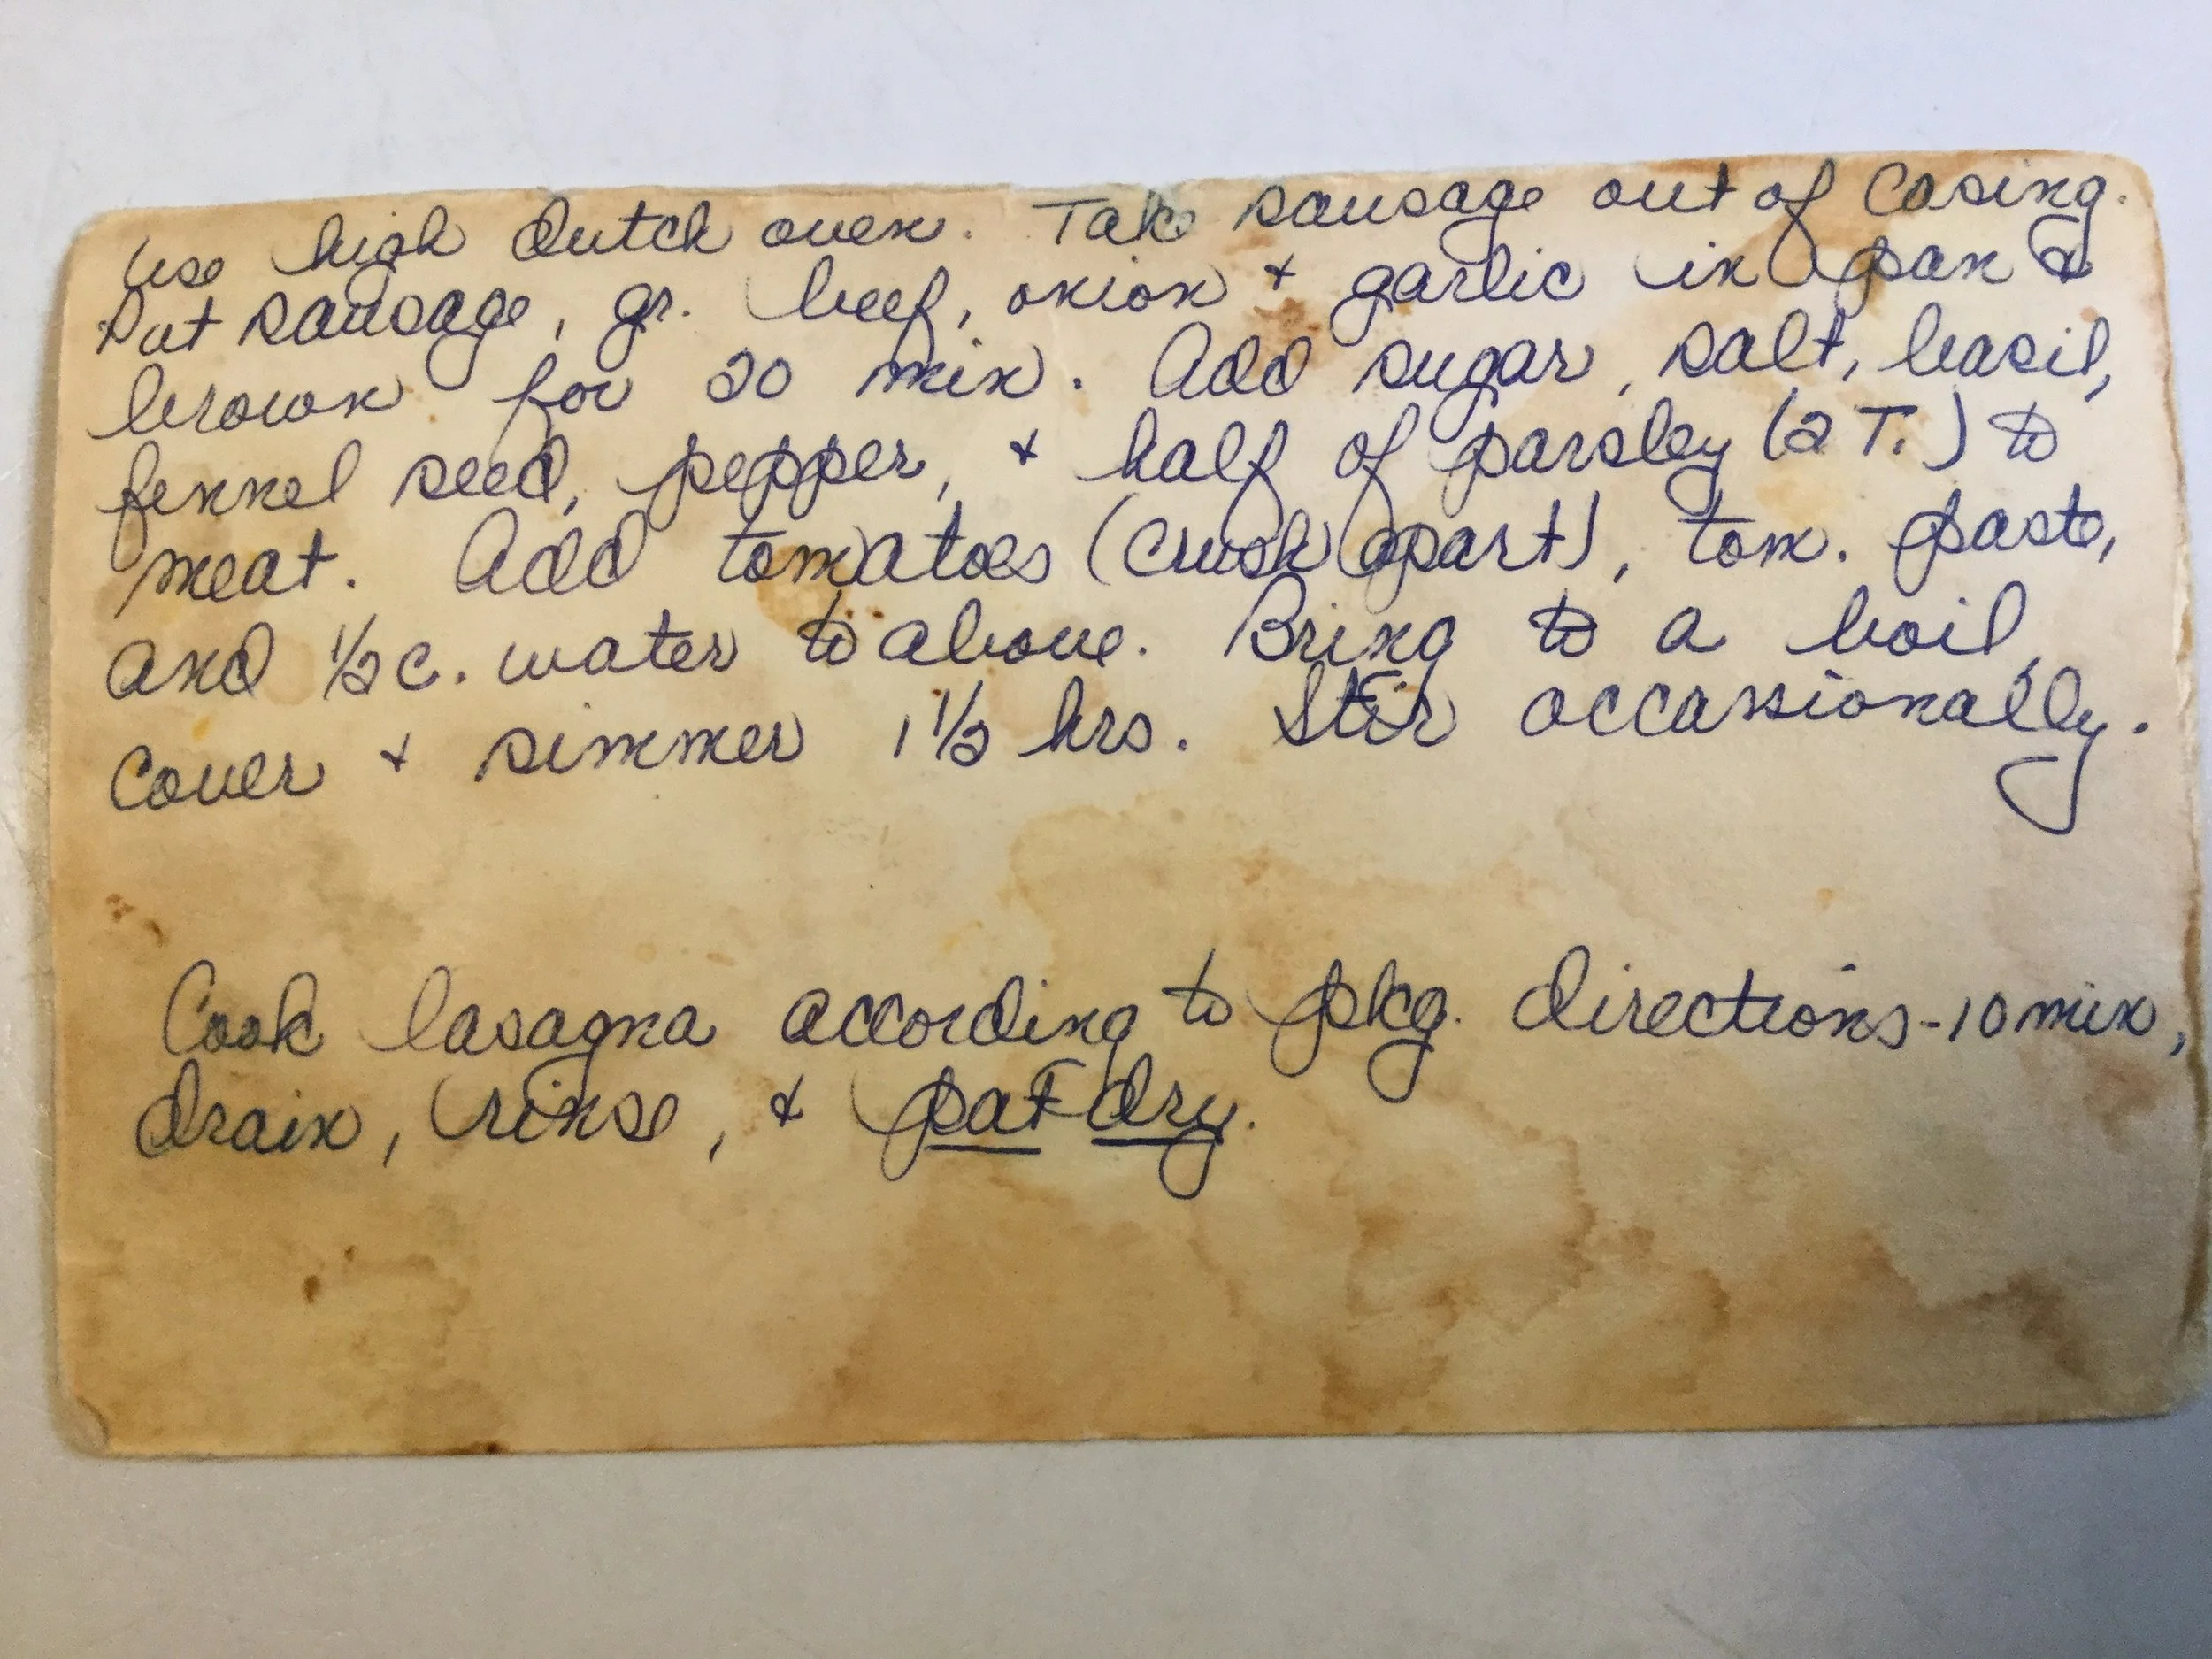 Use high dutch oven. Take sausage out of casing.
Put sausage, gr. beef, onion + garlic in pan &
brown for 20 min. Add sugar, salt, basil,
fennel seed, pepper, + half of parsley (2 T.) to
meat. Add tomatoes (crush apart), tom. paste,
and 1/2 c. water to above. Bring to a boil,
cover + simmer 1 1/2 hrs. Stir occassionally.
Cook lasagna according to pkg. directions - 10 min,
drain, rinse, + pat dry.